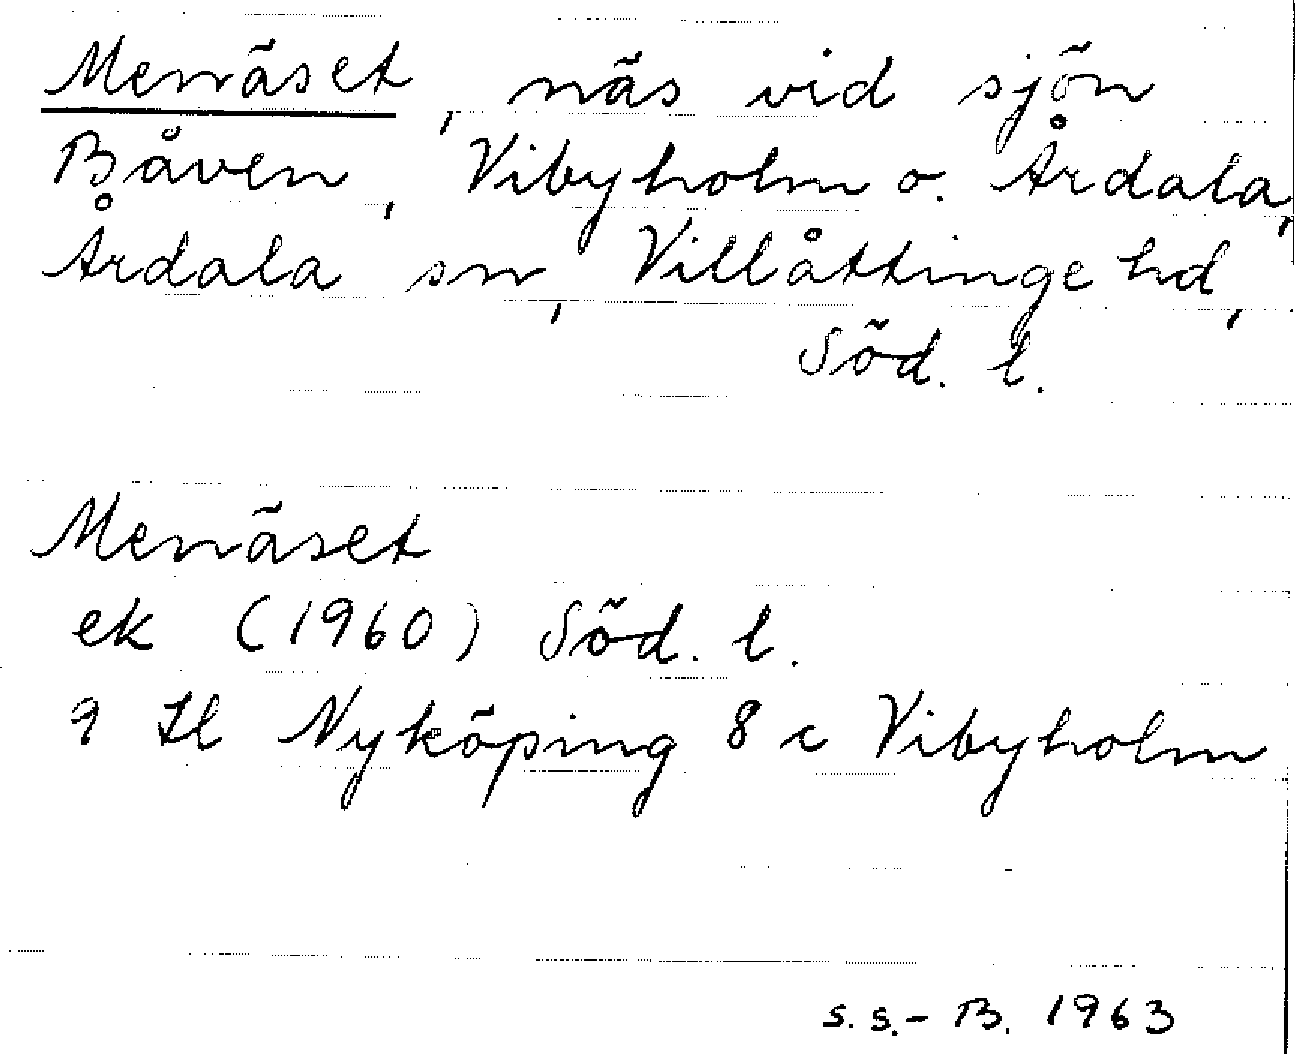 Mernäset, näs vid sjön
Båven, Vibyholm o. Årdala,
Årdala sn, Villåttinge hd,
Söd. l.
Mernäset
ek (1960) Söd. l.
9 H Nyköping 8 c Vibyholm
s. s. - B. 1963